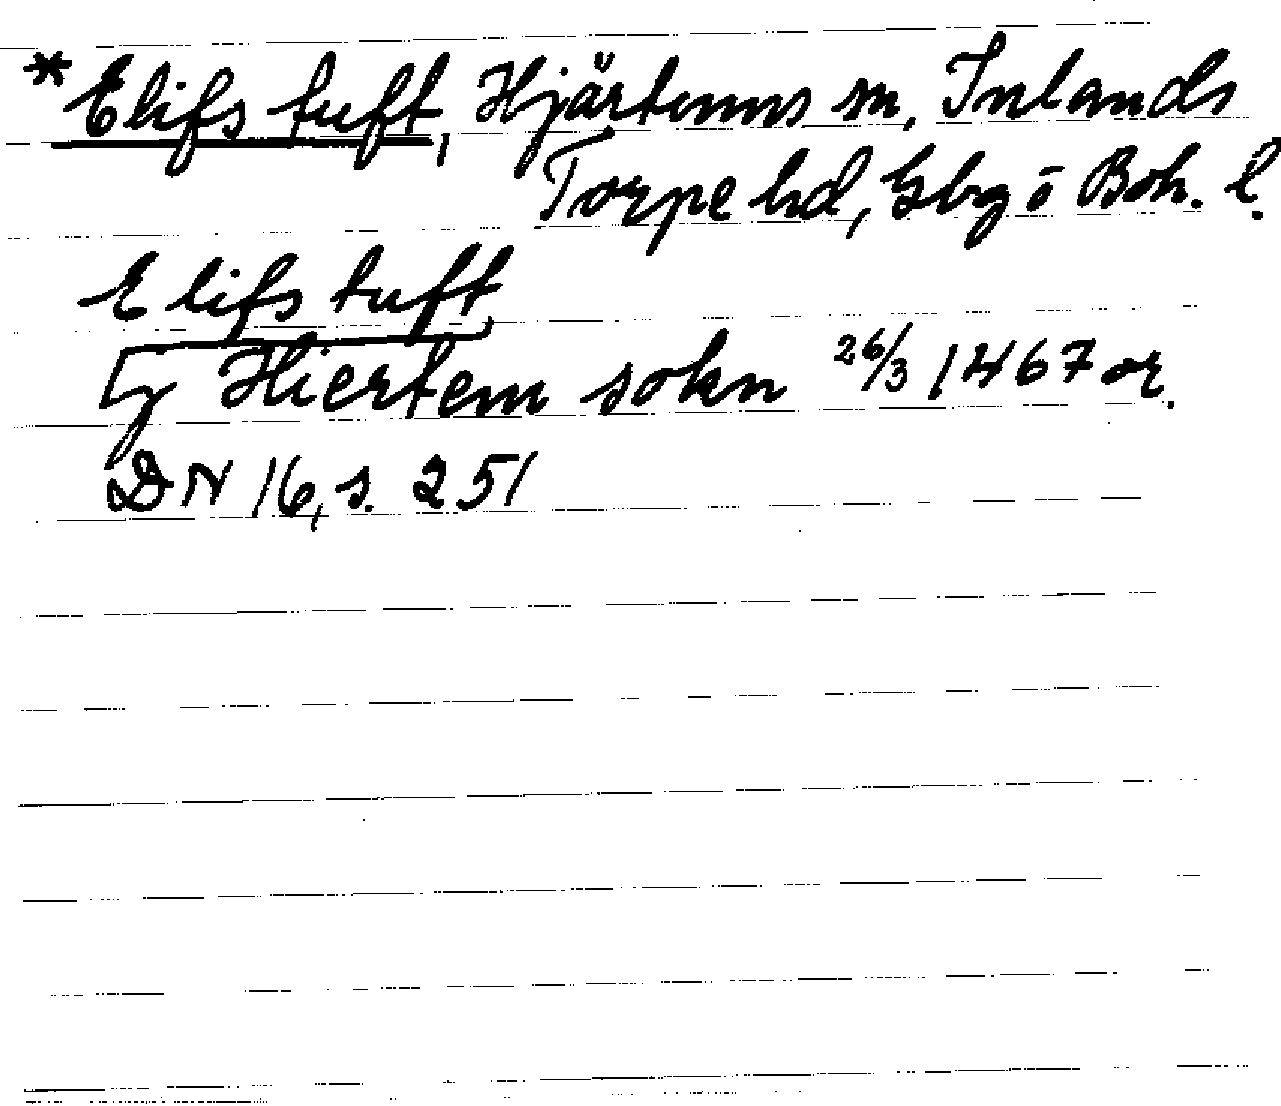 *Elifs tuft, Hjärtums sn, Inlands
Torpe hd, Gbg o Boh. l.
Elifs tuft,
j Hiertem sokn 26/3 1467 or.
DN 16, s. 251